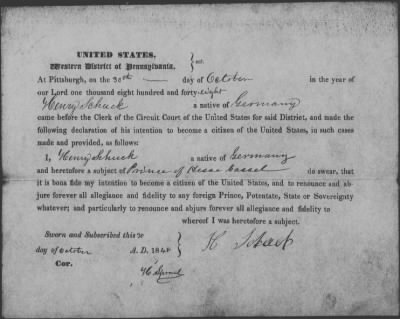 UNITED STATES,
Western District of Pennsylvania. } sct.
At Pittsburgh, on the 30th day of October in the year of
our Lord one thousand eight hundred and forty-eight
Henry Schuck a native of Germany
came before the Clerk of the Circuit Court of the United States for said District, and made the
following declaration of his intention to become a citizen of the United States, in such cases
made and provided, as follows:
I, Henry Schuck a native of Germany
and heretofore a subject of Prince of Hesse Cassel do swear, that
it is bona fide my intention to become a citizen of the United States, and to renounce and ab-
jure forever all allegiance and fidelity to any foreign Prince, Potentate, State or Sovereignty
whatever; and particularly to renounce and abjure forever all allegiance and fidelity to
whereof I was heretofore a subject.
Sworn and Subscribed this 30
day of October A. D. 1848
H
Cor.